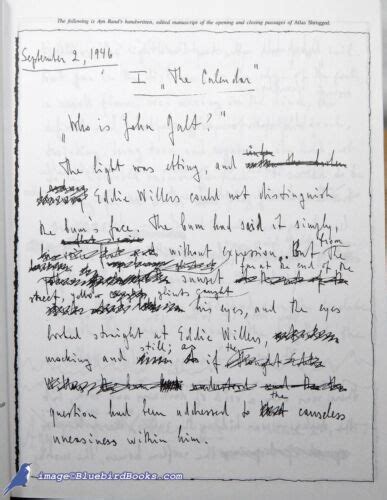 The following is Ayn Rand's handwritten, edited manuscript of the opening and closing passages of Atlas Shrugged.
September 2, 1946
I "The Calendar"
"Who is John Galt?"
The light was ebbing, and
Eddie Willers could not distinguish
the bum's face. The bum had said it simply,
without expression. But from the
sunset far at the end of the
street, yellow glints caught
his eyes, and the eyes
looked straight at Eddie Willers,
mocking and still, as if the
question had been addressed to the causeless
uneasiness within him.
image©BluebirdBooks.com